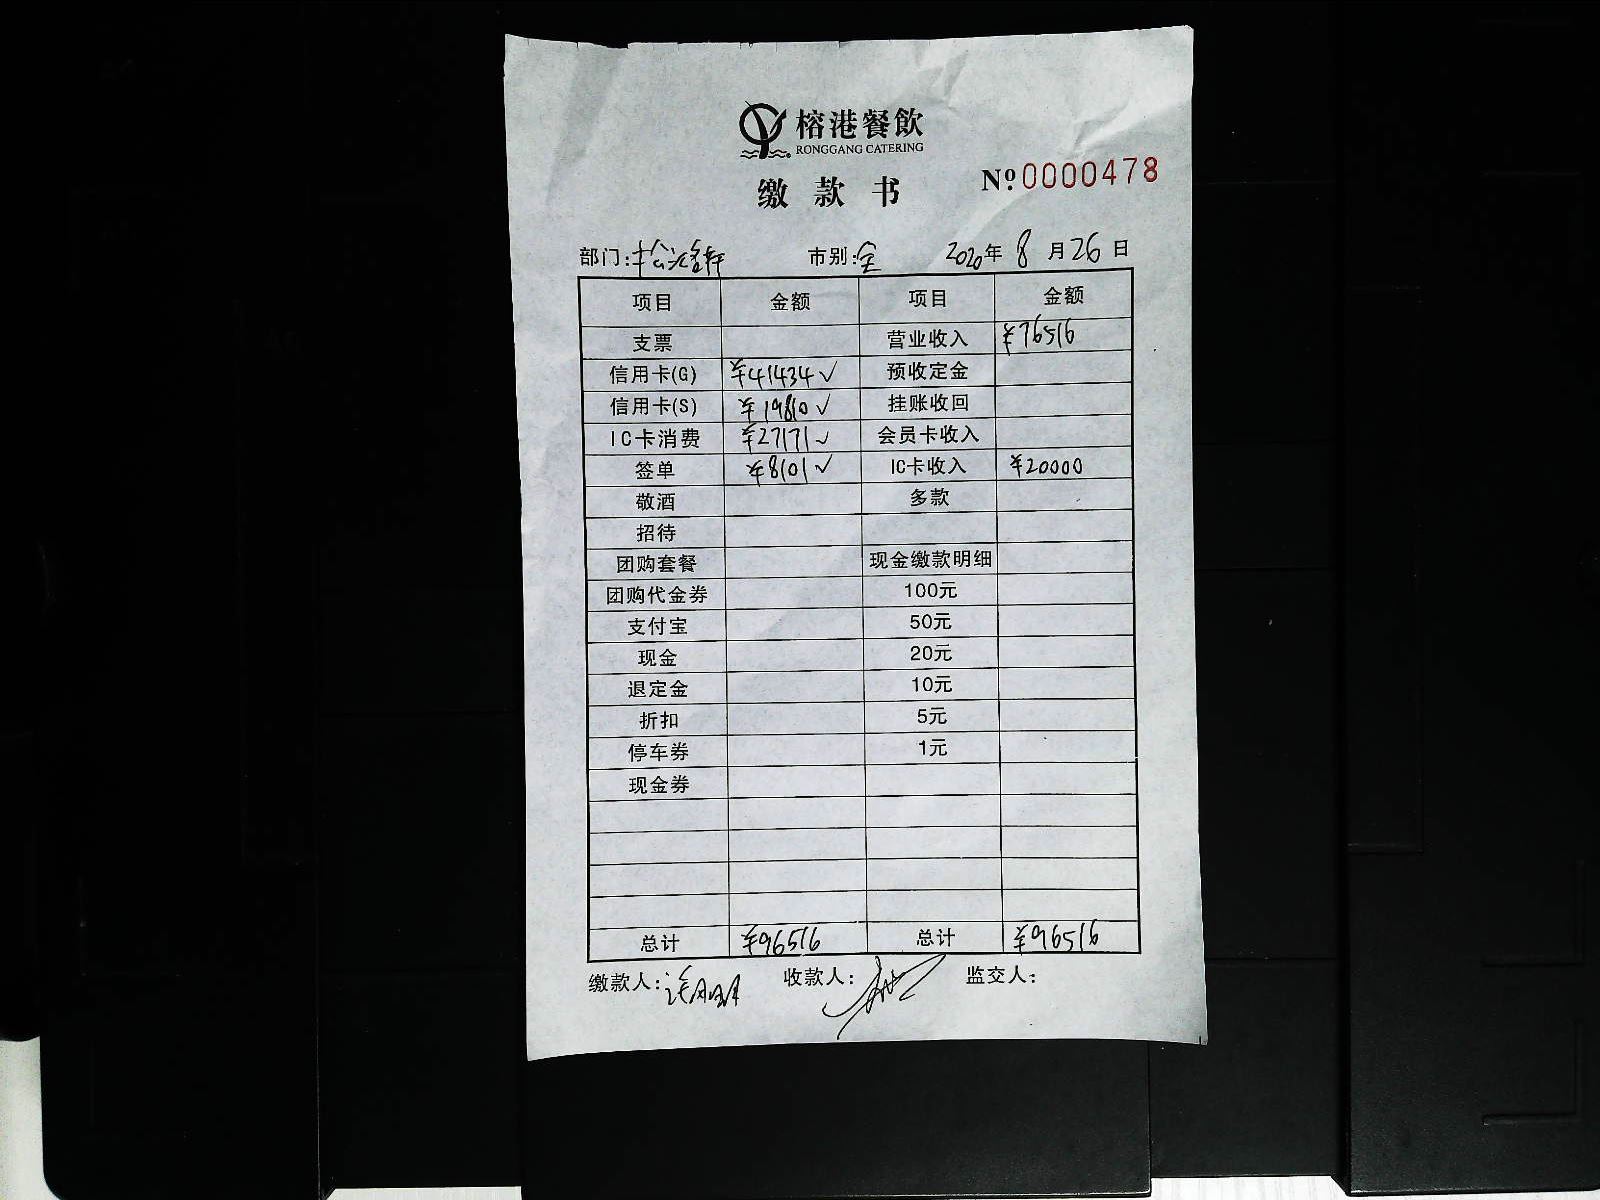 榕港餐飲
RONGGANG CATERING
缴款书 №0000478
部门: 市别:全 2020年8月26日
项目 金额 项目 金额
支票 营业收入 ¥76516
信用卡(G) ¥41434✓ 预收定金
信用卡(S) ¥19810✓ 挂账收回
IC卡消费 ¥27171✓ 会员卡收入
签单 ¥8101✓ IC卡收入 ¥20000
敬酒 多款
招待
团购套餐 现金缴款明细
团购代金券 100元
支付宝 50元
现金 20元
退定金 10元
折扣 5元
停车券 1元
现金券
总计 ¥96516 总计 ¥96516
缴款人: 收款人: 监交人: